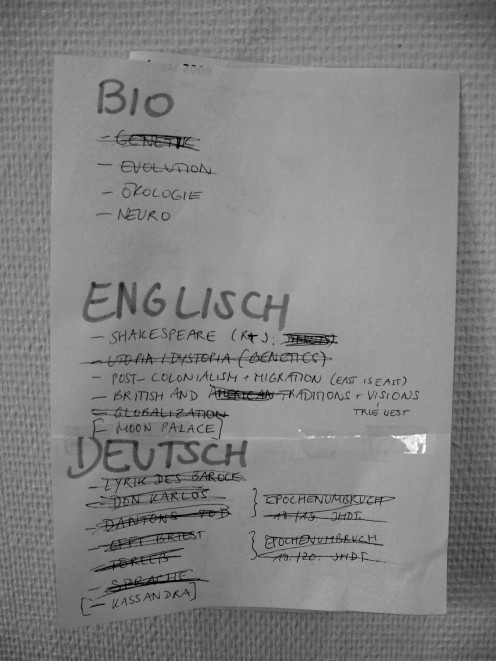 BIO
- GENETIK
- EVOLUTION
- ÖKOLOGIE
- NEURO
ENGLISCH
- SHAKESPEARE (R+J,
- UTOPIA / DYSTOPIA (GENETICS)
- POST-COLONIALISM + MIGRATION (EAST IS EAST)
- BRITISH AND AMERICAN TRADITIONS + VISIONS
TRUE WEST
- GLOBALIZATION
[- MOON PALACE]
DEUTSCH
- LYRIK DES BAROCK
- DON KARLOS
- DANTONS TOD
} EPOCHENUMBRUCH
18./19. JHDT.
- EFFI BRIEST
- TÖRLESS
} EPOCHENUMBRUCH
19./20. JHDT.
- SPRACHE
[- KASSANDRA]